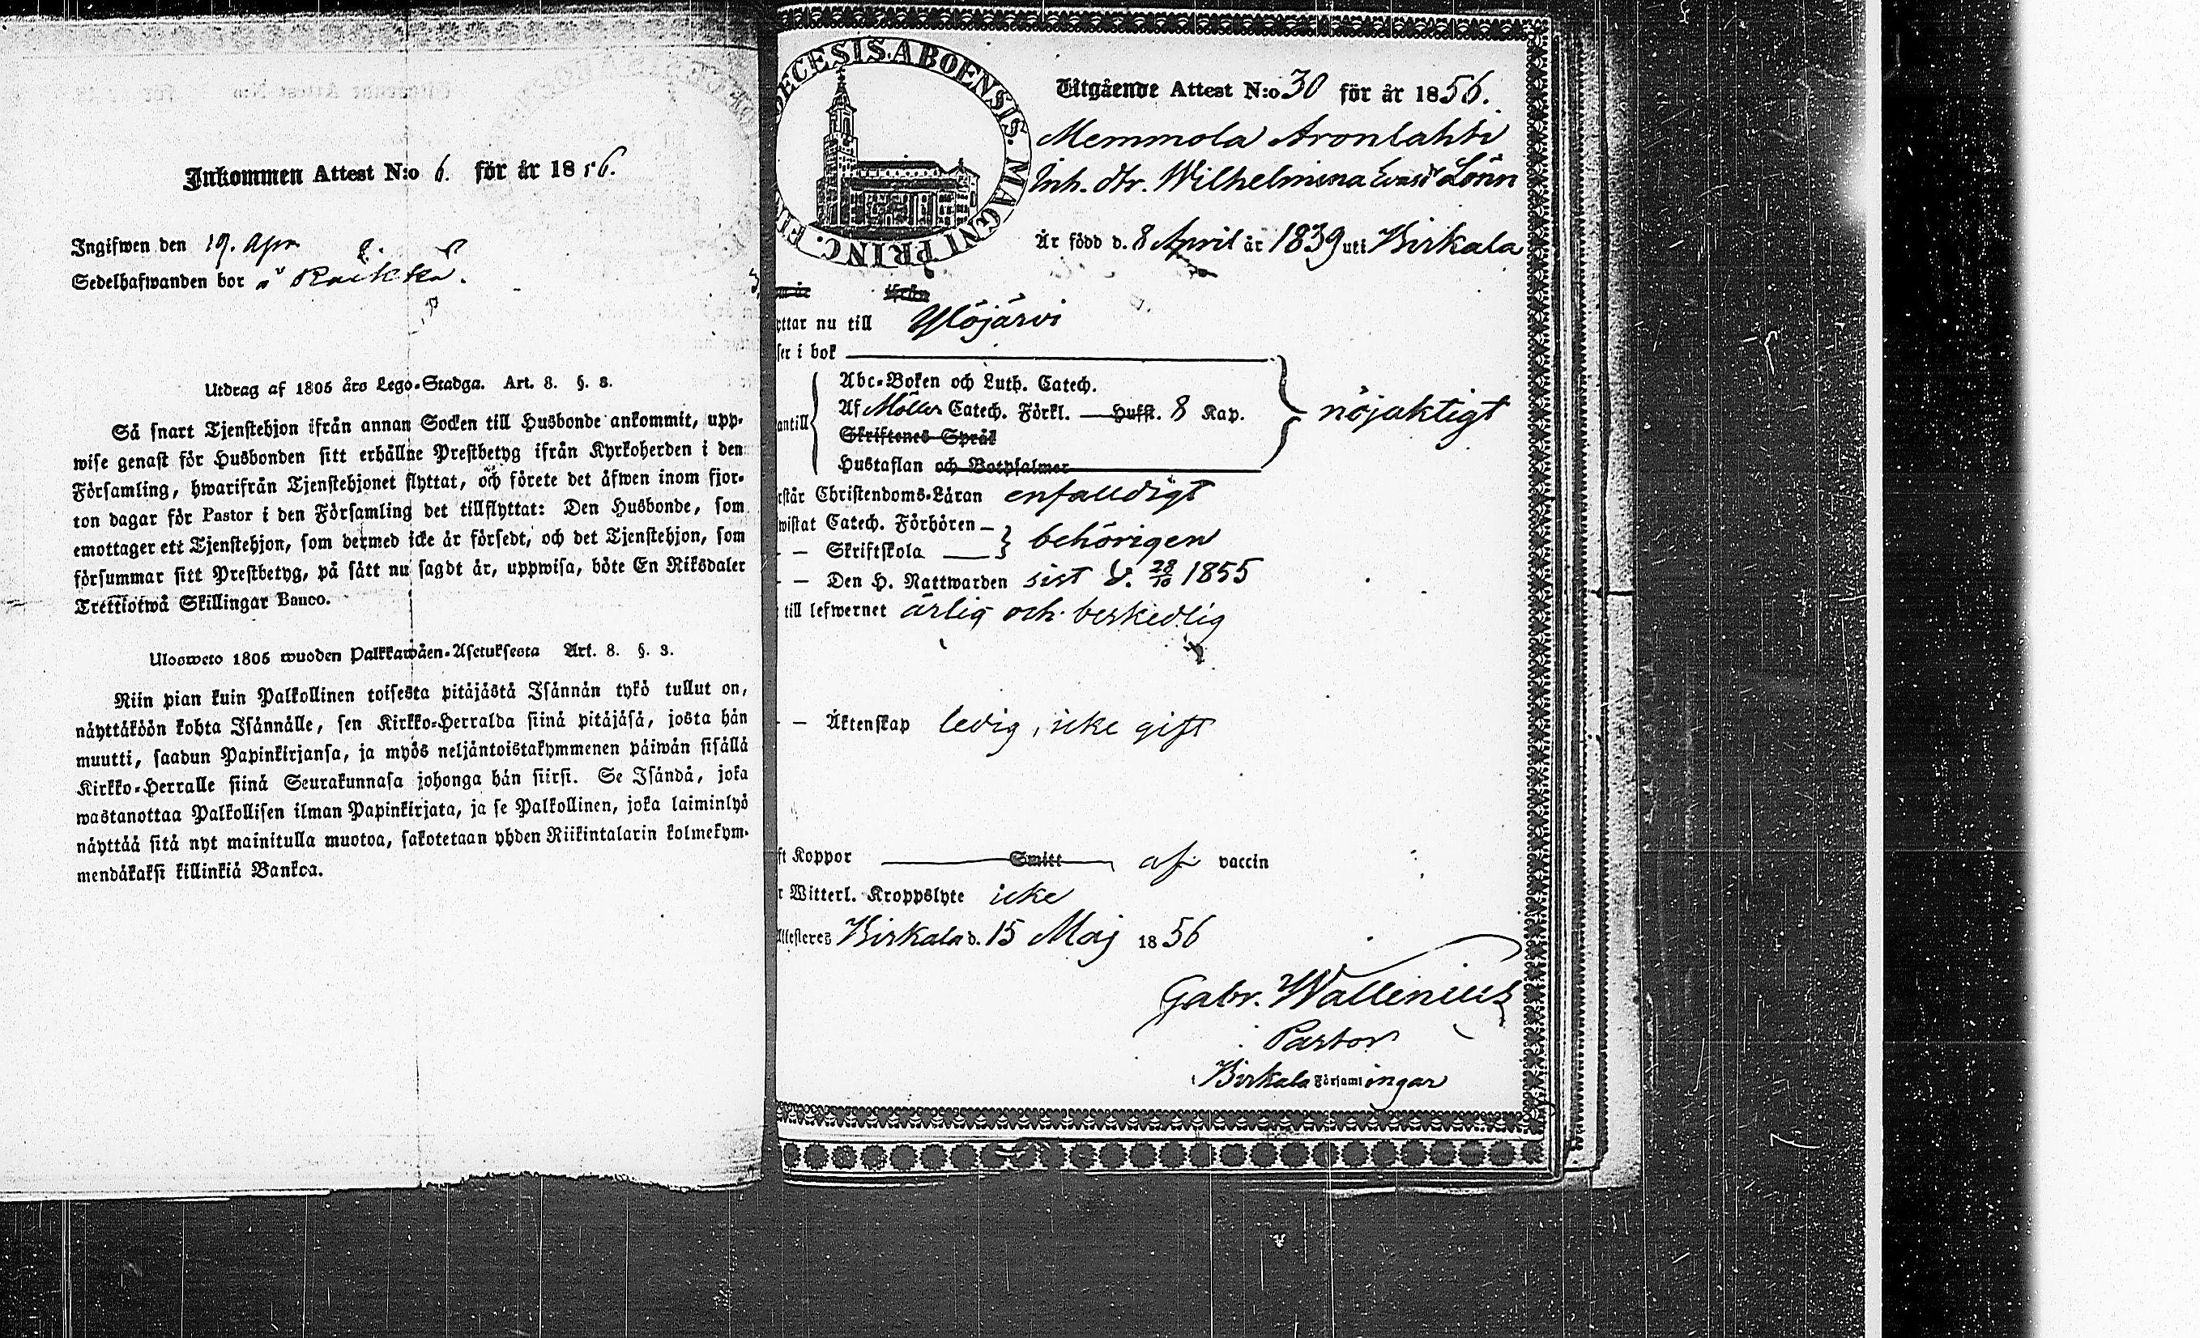 Inkommen Attest N:o 6. för år 1856.
Ingifwen den 19. Apr
Sedelhafwanden bor å Raikka.
Utdrag af 1805 års Lego-Stadga. Art. 8. §. 3.
Så snart Tjenstehjon ifrån annan Socken till Husbonde ankommit, upp-
wise genast för Husbonden sitt erhållne Prestbetyg ifrån Kyrkoherden i den
Församling, hwarifrån Tjenstehjonet flyttat, och förete det äfwen inom fjor-
ton dagar för Pastor i den Församling det tillflyttat: Den Husbonde, som
emottager ett Tjenstehjon, som dermed icke är försedt, och det Tjenstehjon, som
försummar sitt Prestbetyg, på sätt nu sagdt är, uppwisa, böte En Riksdaler
Trettiotwå Skillingar Banco.
Ulosweto 1805 wuoden Palkkawäen-Asetuksesta Art. 8. §. 3.
Niin pian kuin Palkollinen toisesta pitäjästä Isännän tykö tullut on,
näyttäköön kohta Isännälle, sen Kirkko-Herralda siinä pitäjäsä, josta hän
muutti, saadun Papinkirjansa, ja myös neljäntoistakymmenen päiwän sisällä
Kirkko-Herralle siinä Seurakunnasa johonga hän siirsi. Se Isändä, joka
wastanottaa Palkollisen ilman Papinkirjata, ja se Palkollinen, joka laiminlyö
näyttää sitä nyt mainitulla muotoa, sakotetaan yhden Riikintalarin kolmekym-
mendäkaksi killinkiä Bankoa.
ECESIS. ABOENSIS. MAGNI PRINC. FIN
Utgående Attest N:o 30 för år 1856.
Memmola Aronlahti
Inh. dtr. Wilhelmina Evasdr Lönn
Är född d. 8 April år 1839 uti Birkala
m år ifrån
yttar nu till Ylöjärvi
ser i bok
Abc-Boken och Luth. Catech.
Af Möllers Catech. Förkl. Hufst. 8 Kap. nöjaktigt
antill
Skriftenes Språk
Hustaflan och Botpsalmer
rstår Christendoms-Läran enfalldigt
wistat Catech. Förhören –
– – Skriftskola behörigen
– – Den H. Nattwarden sist d. 28/10 1855
till lefwernet ärlig och beskedlig
– – Äktenskap ledig, icke gift
ft Koppor Smitt af vaccin
r Witterl. Kroppslyte icke
Attesteres Birkala d. 15 Maj 1856
Gabr. Wallenius
Pastor
i Birkala Församlingar